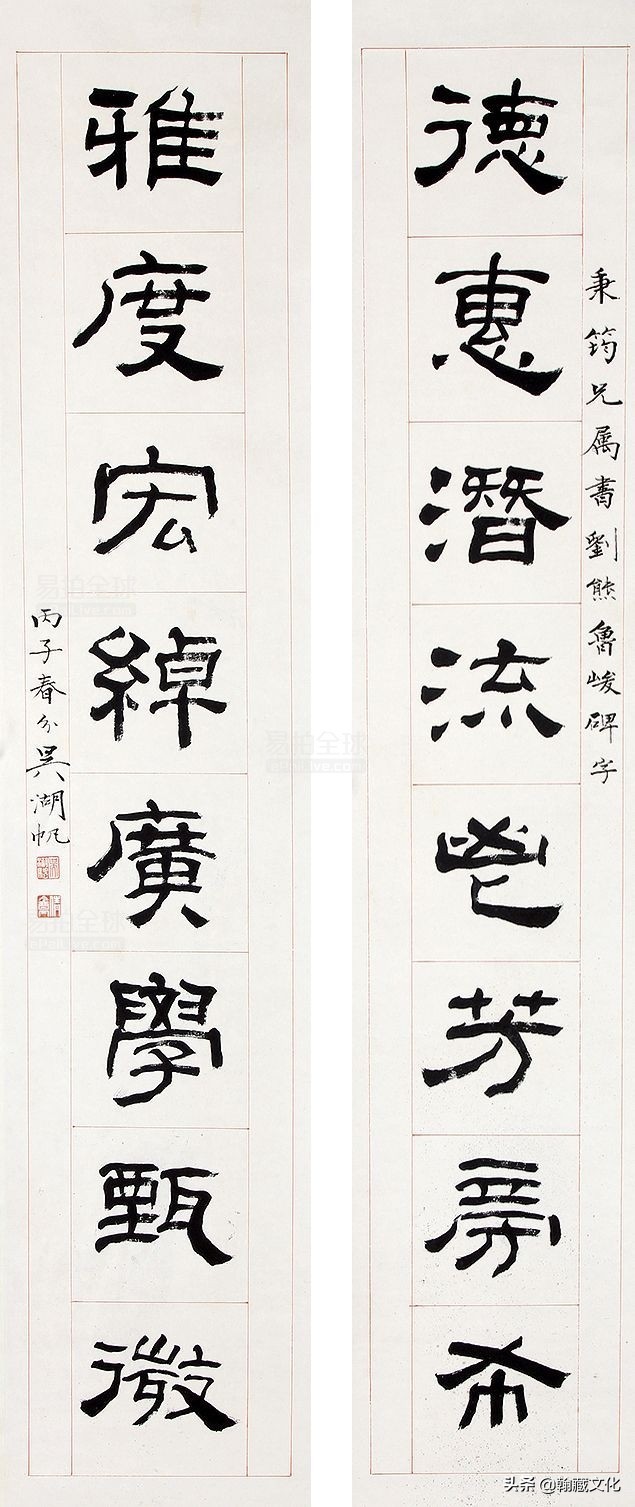 秉筠兄属書劉熊魯峻碑字
德惠潛流鬯芳旁布
雅度宏綽廣學甄微
丙子春分吳湖帆
易拍全球
易拍全球
易拍全球
头条 @翰藏文化